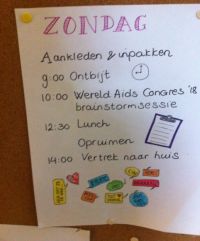 ZONDAG
Aankleden & inpakken
9:00 Ontbijt
10:00 Wereld Aids Congres '18
brainstormsessie
12:30 Lunch
Opruimen
14:00 Vertrek naar huis